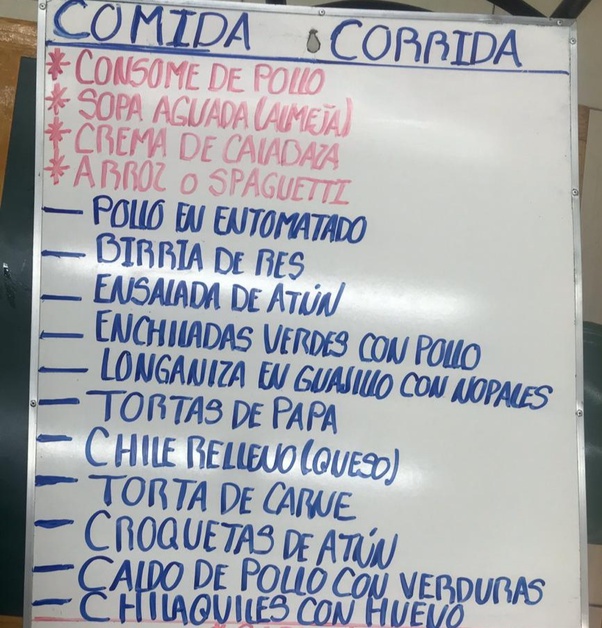 COMIDA CORRIDA
* CONSOME DE POLLO
* SOPA AGUADA (ALMEJA)
* CREMA DE CALABAZA
* ARROZ O SPAGUETTI
— POLLO EN ENTOMATADO
— BIRRIA DE RES
— ENSALADA DE ATÚN
— ENCHILADAS VERDES CON POLLO
— LONGANIZA EN GUAJILLO CON NOPALES
— TORTAS DE PAPA
— CHILE RELLENO (QUESO)
— TORTA DE CARNE
— CROQUETAS DE ATÚN
— CALDO DE POLLO CON VERDURAS
— CHILAQUILES CON HUEVO